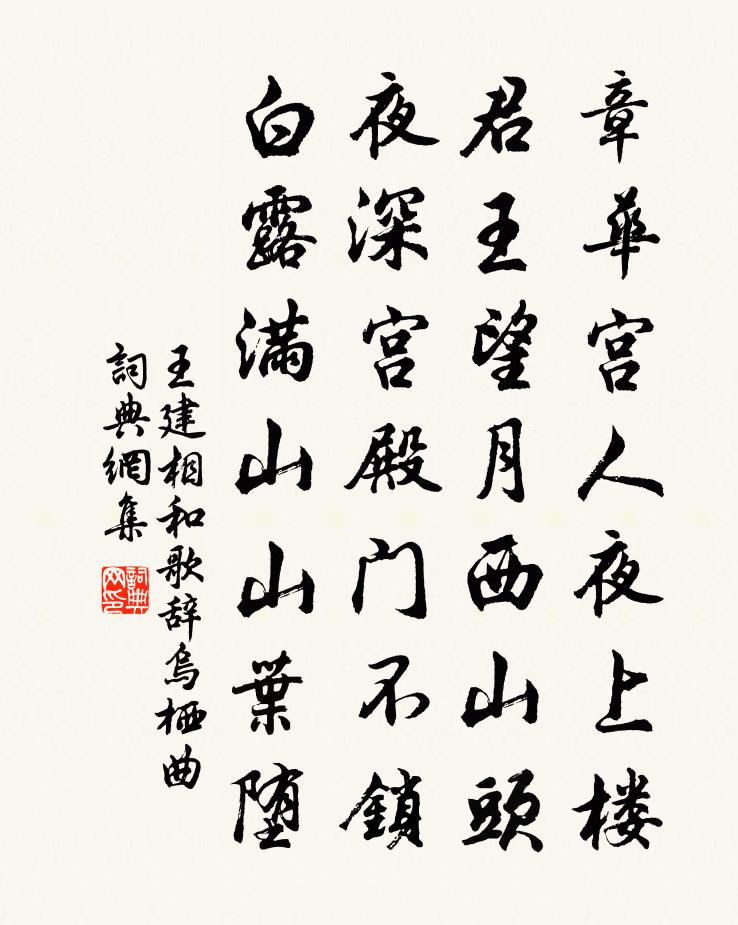 章華宫人夜上楼
君王望月西山頭
夜深宫殿门不鎖
白露滿山山葉堕
王建相和歌辞烏栖曲
詞典網集
詞典网印